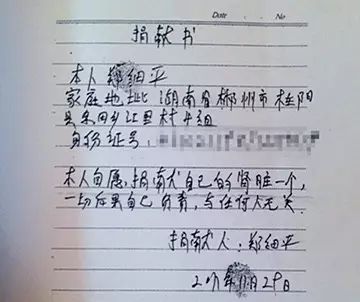 Date No
捐献书
本人郑细平
家庭地址:湖南省郴州市桂阳
县东回乡江里村十组
身份证号:
本人自愿,捐献自己的肾脏一个,
一切后果自己负责,与任何人无关.
捐献人:郑细平
月29日